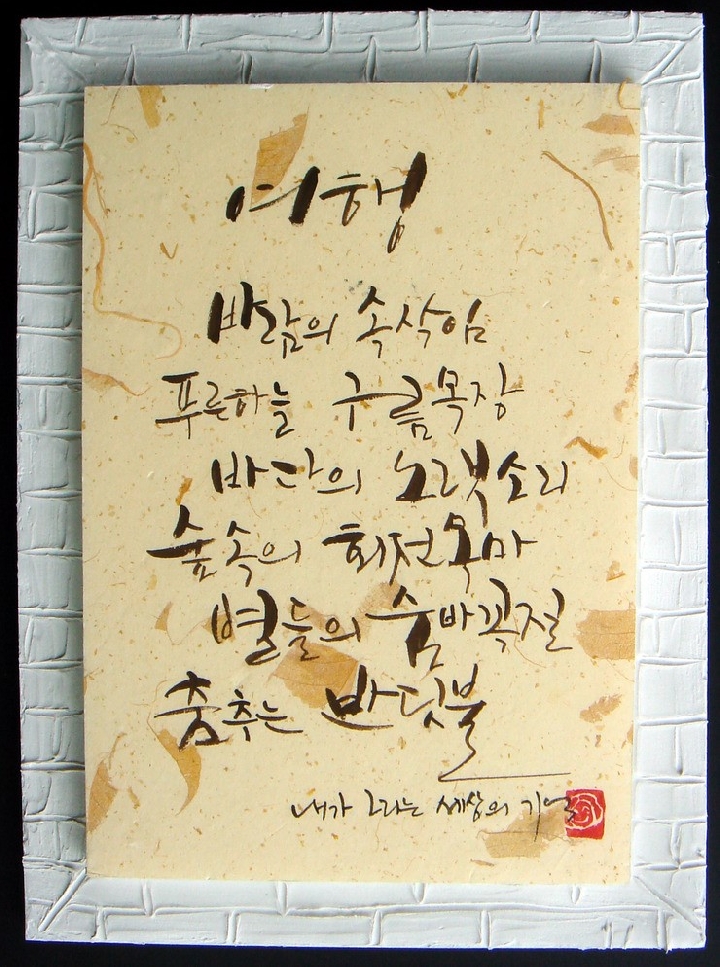 여행
바람의 속삭임
푸른하늘 구름목장
바다의 노랫소리
숲속의 회전목마
별들의 숨바꼭질
춤추는 반딧불
내가 그리는 세상의 기억